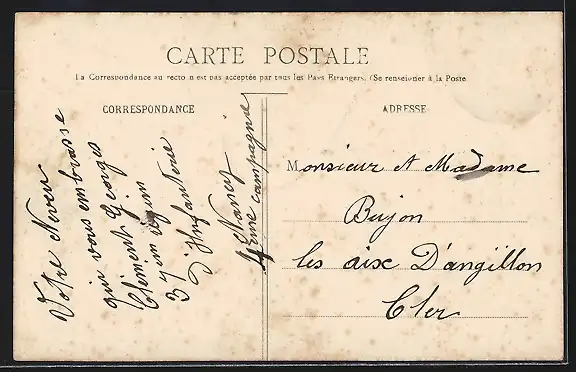 CARTE POSTALE
La Correspondance au recto n'est pas acceptée par tous les Pays Etrangers. (Se renseigner à la Poste
CORRESPONDANCE
ADRESSE
Votre Neveu
qui vous embrasse
Clément Georges
37ém
D'Infanterie
Nancy
4eme Campagnie
Monsieur et Madame
Bujon
les aix D'angillon
Cher